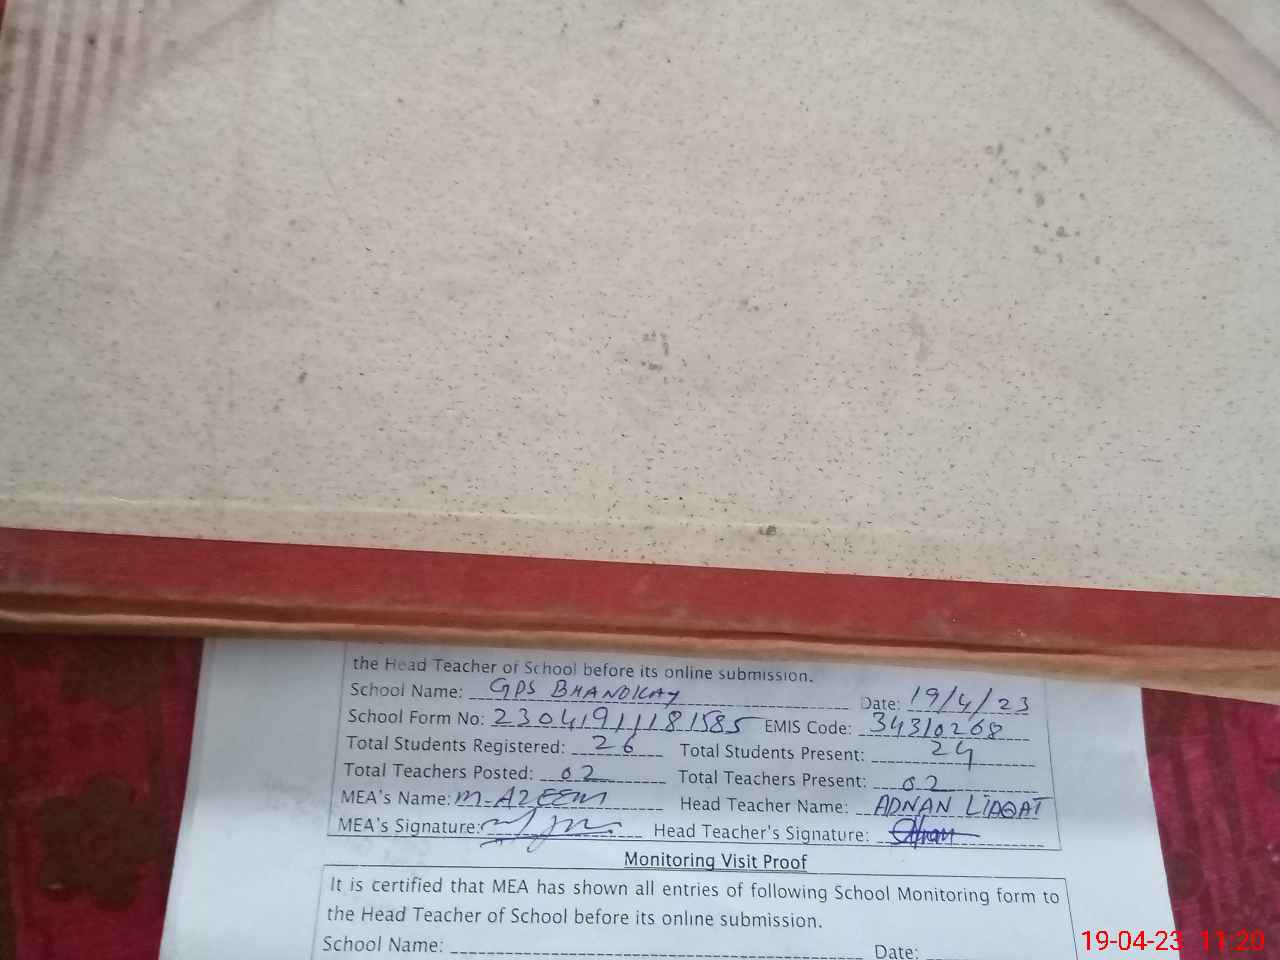 the Head Teacher of School before its online submission.
School Name: GPS BHANOKAY Date: 19/4/23
School Form No: 23041911181585 EMIS Code: 34310268
Total Students Registered: 26 Total Students Present: 24
Total Teachers Posted: 02 Total Teachers Present: 02
MEA's Name: M-AZEEM Head Teacher Name: ADNAN LIAQAT
MEA's Signature: Head Teacher's Signature:
Monitoring Visit Proof
It is certified that MEA has shown all entries of following School Monitoring form to
the Head Teacher of School before its online submission.
School Name: Date:
19-04-23 11:20